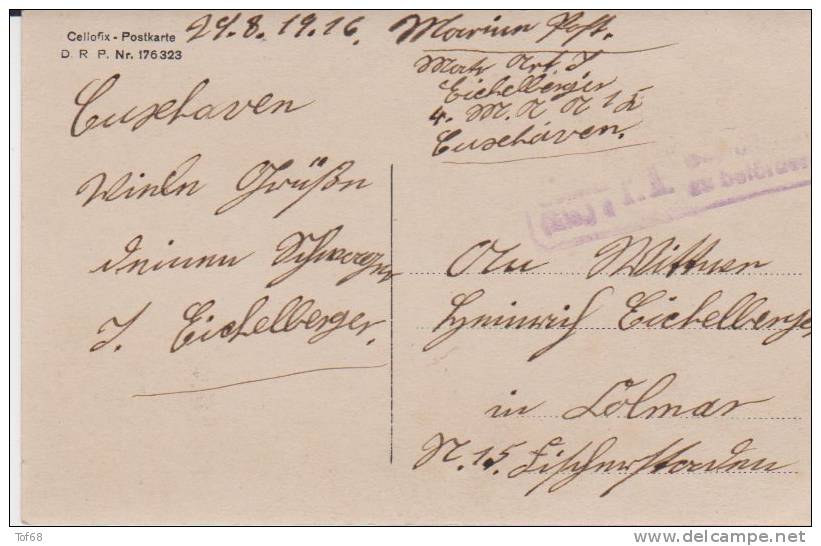 Cellofix - Postkarte
D. R. P. Nr. 176323
29.8.1916.
Marine Post.
Matr Art. I
Eichelberger
4. M. A A
Cuxhaven.
Cuxhaven
Viele Grüße
deinen Schwager
J. Eichelberger.
An Wittwer
Heinrich Eichelberger
in Colmar
N. 15. Fischerstaden
Tof68
www.delcampe.net